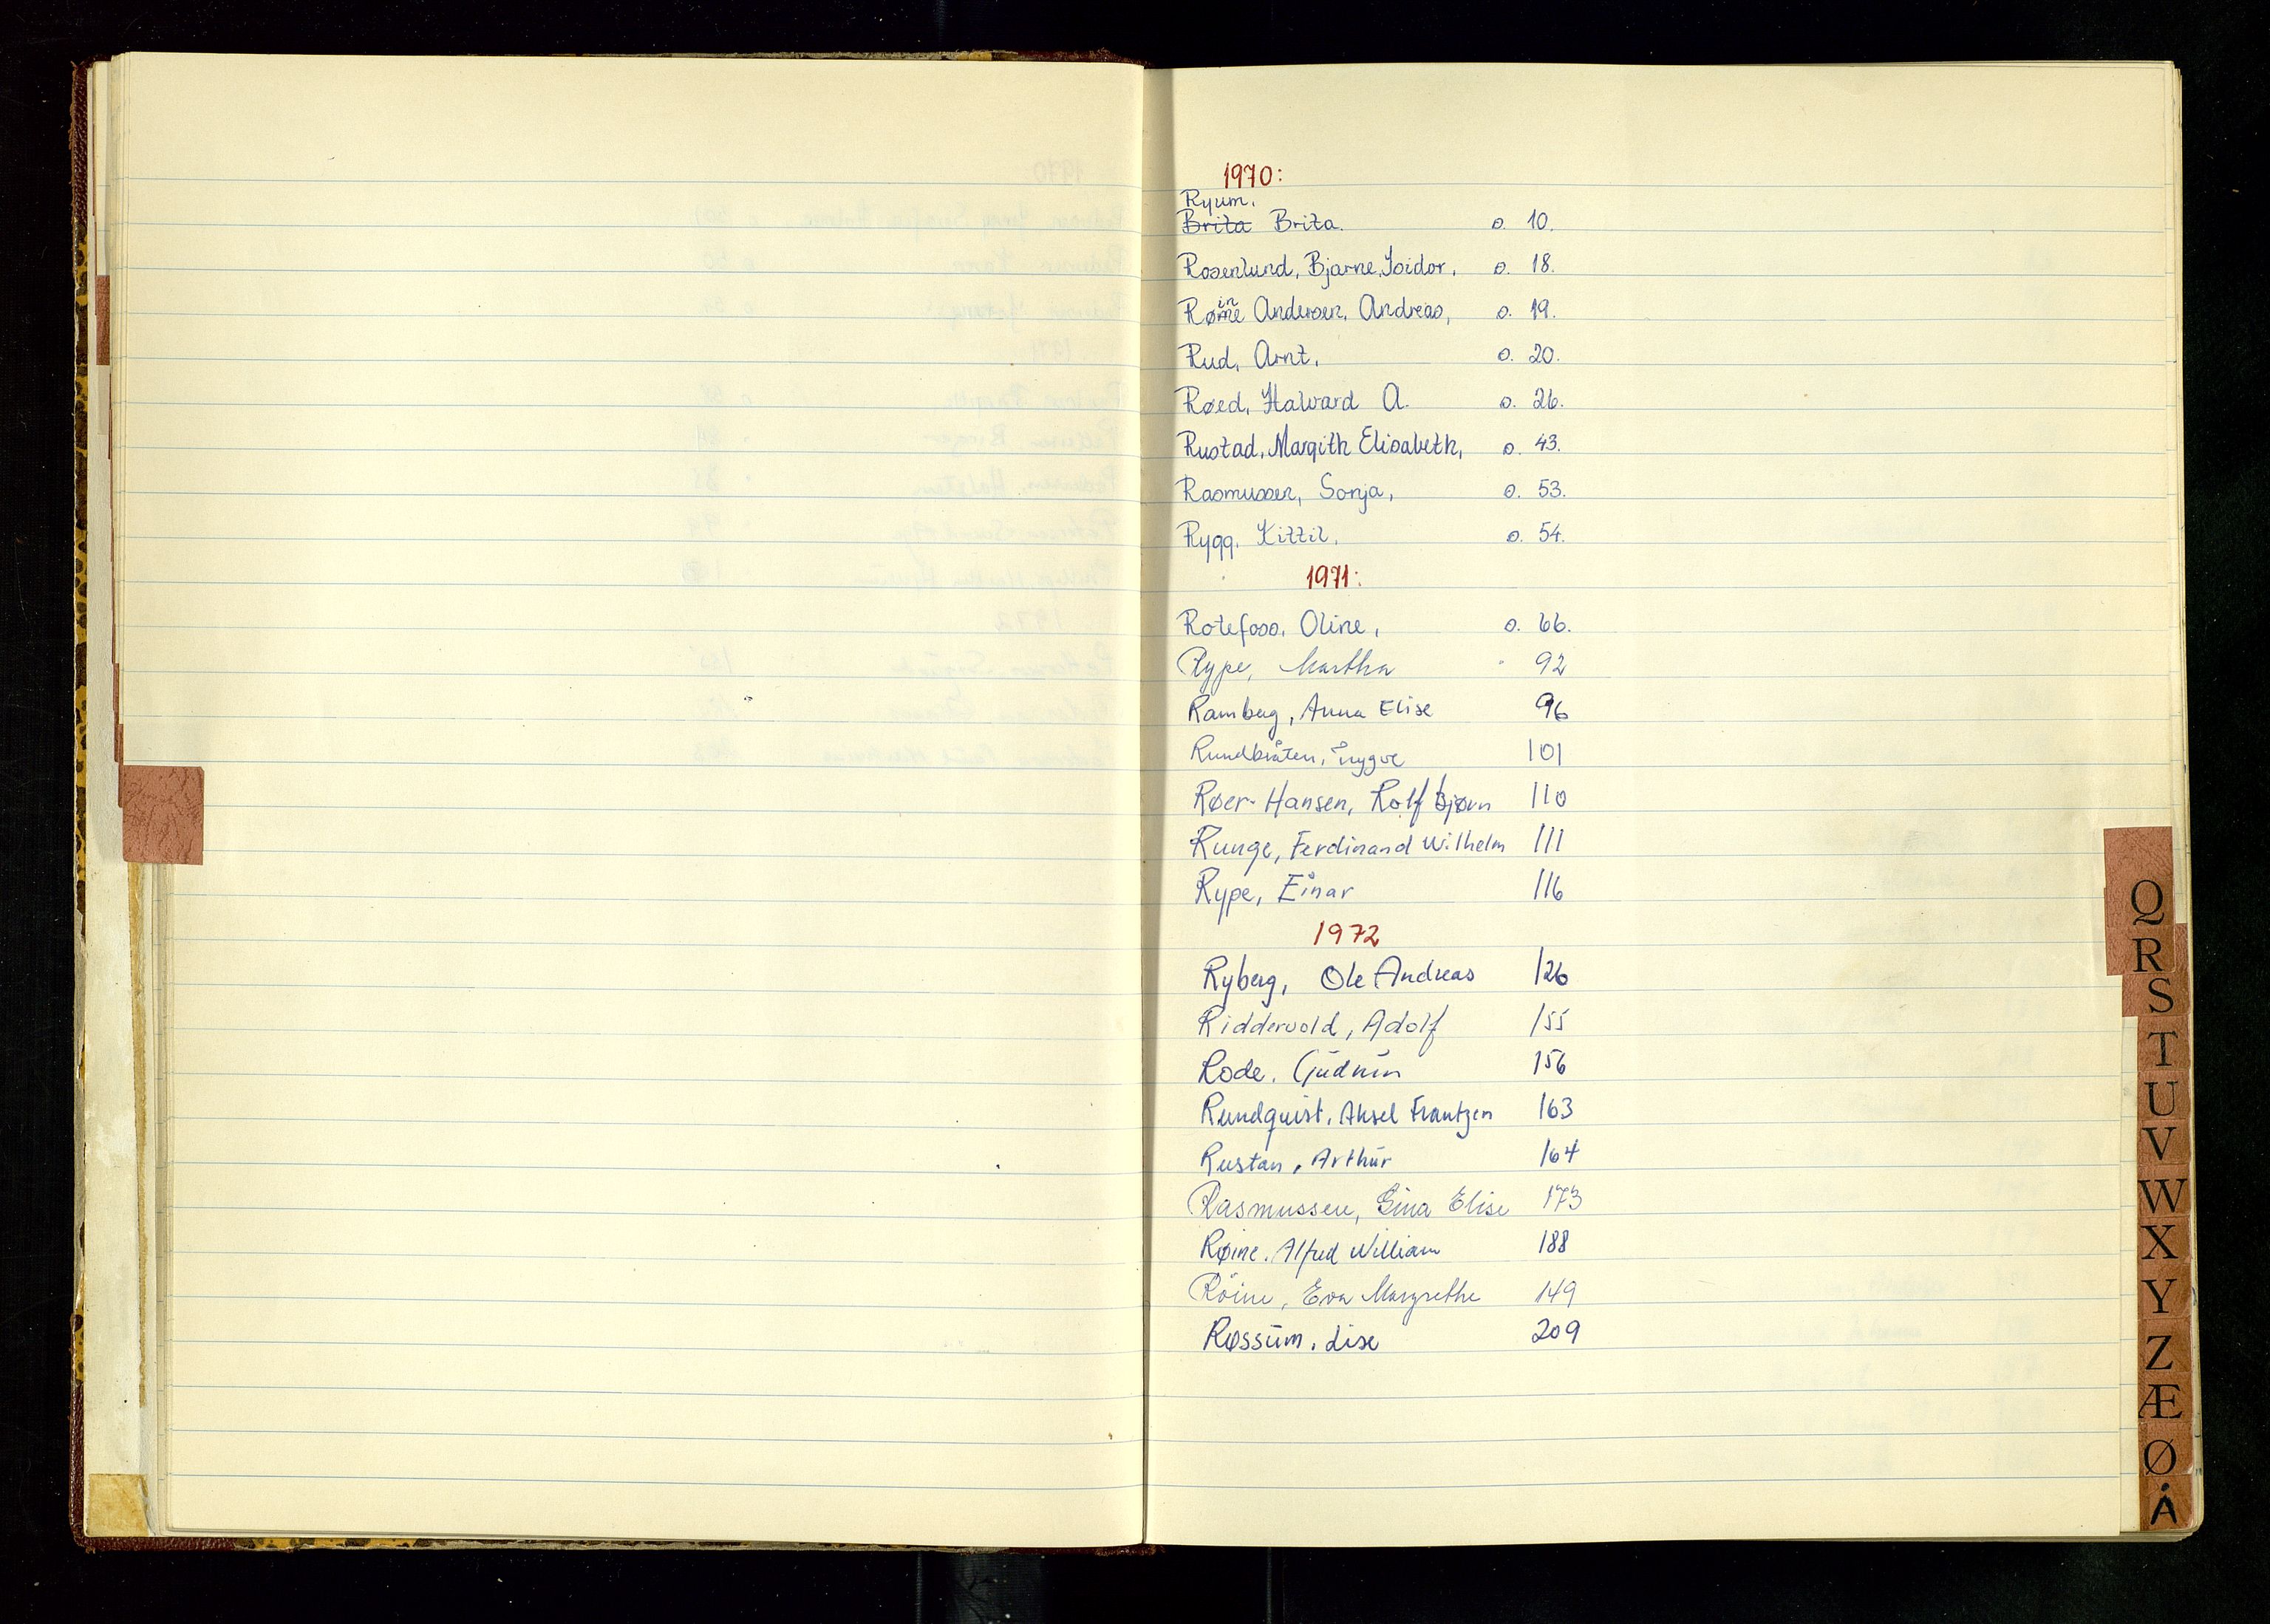 1970:
Ryum.
Brita Brita. o. 10.
Rosenlund, Bjarne, Isidor, o. 18.
in
Røme Andersen, Andreas, o. 19.
Rud, Arnt, o. 20.
Røed, Halvard A. o. 26.
Rustad, Margith Elisabeth, o. 43.
Rasmussen, Sonja, o. 53.
Rygg, Kittil, o. 54.
1971:
Rotefoss, Oline, o. 66.
Rype, Martha " 92
Ramberg, Anna Elise 96
Rundbråten, Trygve 101
Røer-Hansen, Rolf Bjørn 110
Runge, Ferdinand Wilhelm 111
Rype, Einar 116
1972
Ryberg, Ole Andreas 126
Riddervold, Adolf 155
Rode, Gudrun 156
Rundquist, Aksel Frantzen 163
Rustan, Arthur 164
Rasmussen, Gina Elise 173
Røine, Alfred William 188
Röine, Eva Margrethe 149
Røssum, Lise 209
Q
R
S
T
U
V
W
X
Y
Z
Æ
Ø
Å